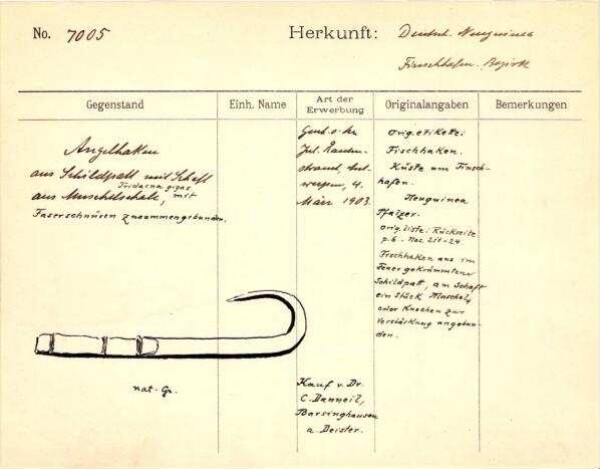 No. 7005
Herkunft: Deutsch. Neuguinea
Finschhafen. Bezirk
Gegenstand
Einh. Name
Art der Erwerbung
Originalangaben
Bemerkungen
Angelhaken
aus Schildpatt mit Schaft
Tridacna gigas
aus Muschelschale, mit
Faserschnüren zusammengebunden.
nat. Gr.
Jul.
4.
März 1903.
Kauf v. Dr.
C. Danneil,
Barsinghausen
a Deister.
orig. etikete:
Fischhaken.
Küste um Finsch-
hafen.
Neuguinea
Pfalzer.
orig. liste: Rückseite
p. 6 - Nos 211-24.
Fischhaken aus im
Feuer gekrümmtem
Schildpatt, am Schaft
ein Stück Muschel,
oder Knochen zur
Verstärkung angebun-
den.